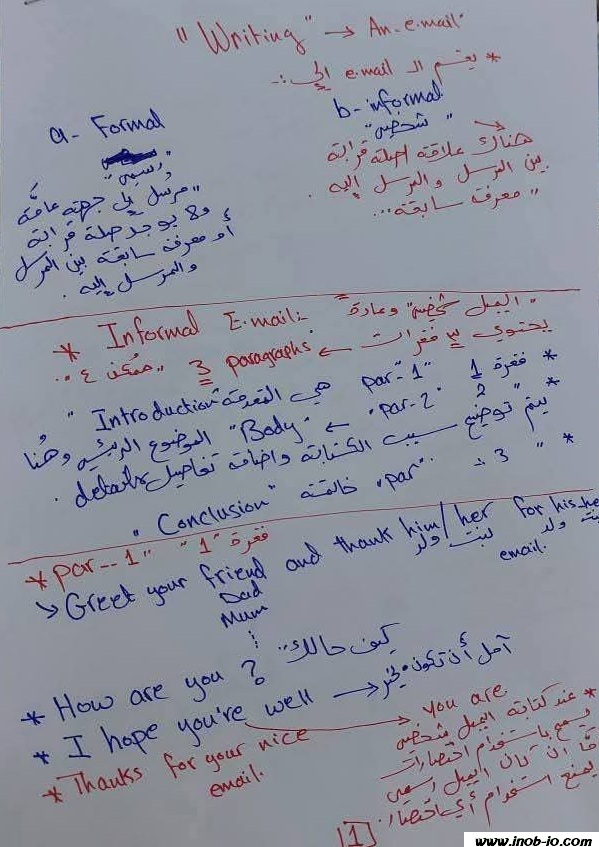 "Writing" → An e.mail:
* يقسم الـ e.mail إلي :-
a- Formal
"رسمي"
"مرسل إلي جهة عامة
ولا يوجد صلة قرابة
أو معرفة سابقة بين المرسل
والمرسل إليه.
b- informal
"شخصي"
هناك علاقة أو صلة قرابة
بين المرسل والمرسل إليه
"معرفة سابقة...
* Informal E.mail :- "الايميل شخصي" وعادةً
يحتوي ٣ فقرات ← 3 paragraphs "ممكن ٤"..
* فقرة 1 "par-"1 هي المقدمة "Introduction"
* " 2 "par-2" ← "Body" الموضوع الرئيسي وهُنا
يتم توضيح سبب الكتابة واضافة تفاصيل details.
* " 3 :- "par" خاتمة "Conclusion"
* par--1" "1" فقرة
↳ Greet your friend and thank him/her for his/her
ولد بنت ولد بنت
email.
Dad
Mum
* How are you? كيف حالك..
* I hope you're well → آمل أن تكون بخير
* Thanks for your nice
email.
you are
* عند كتابة ايميل شخصي
يسمح باستخدام اختصارات
أمّا ان كان ايميل رسمي
يمنع استخدام أي اختصار.
[1]
www.inob-io.com